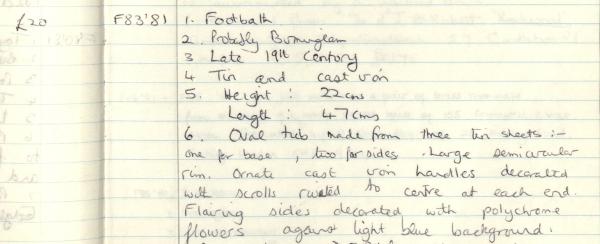 £20 F83'81 1. Footbath.
2. Probably Birmingham
3 Late 19th Century
4 Tin and cast iron
5. Height : 22cms
Length : 47cms
6. Oval tub made from three tin sheets :-
one for base, two for sides. Large semicircular
rim. Ornate cast iron handles decorated
with scrolls riveted to centre at each end.
Flairing sides decorated with polychrome
flowers against light blue background.